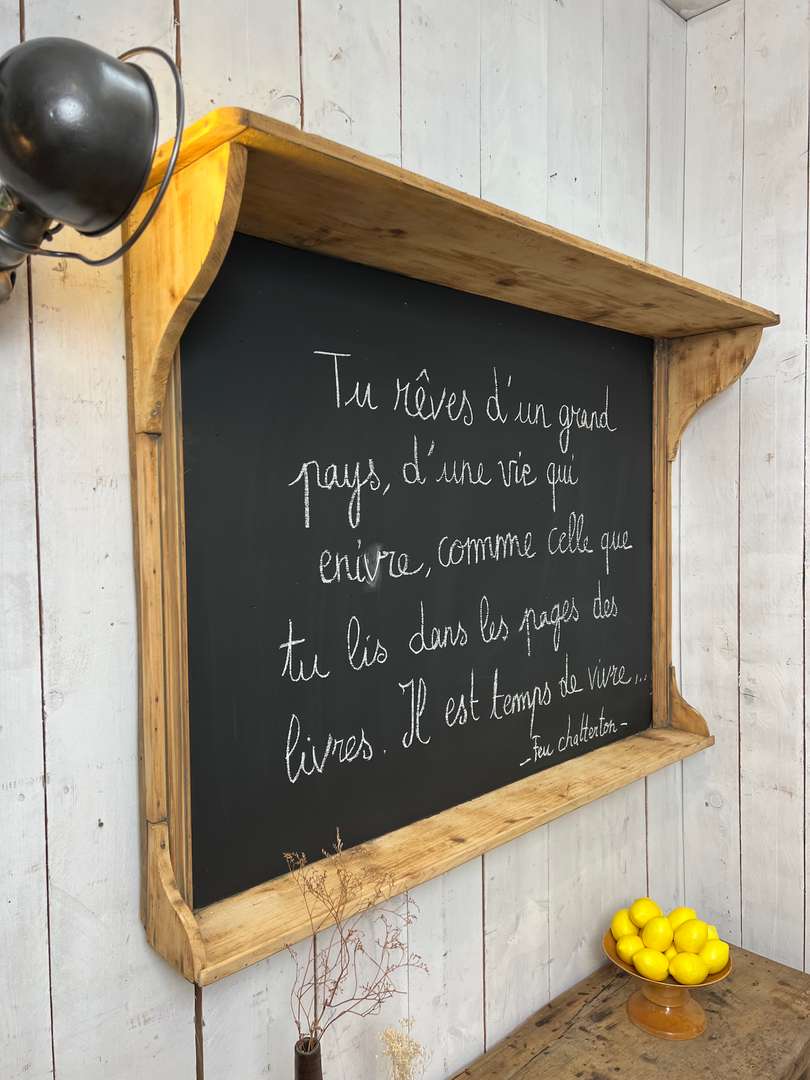 Tu rêves d'un grand
pays, d'une vie qui
enivre, comme celle que
tu lis dans les pages des
livres. Il est temps de vivre...
- Feu chatterton -